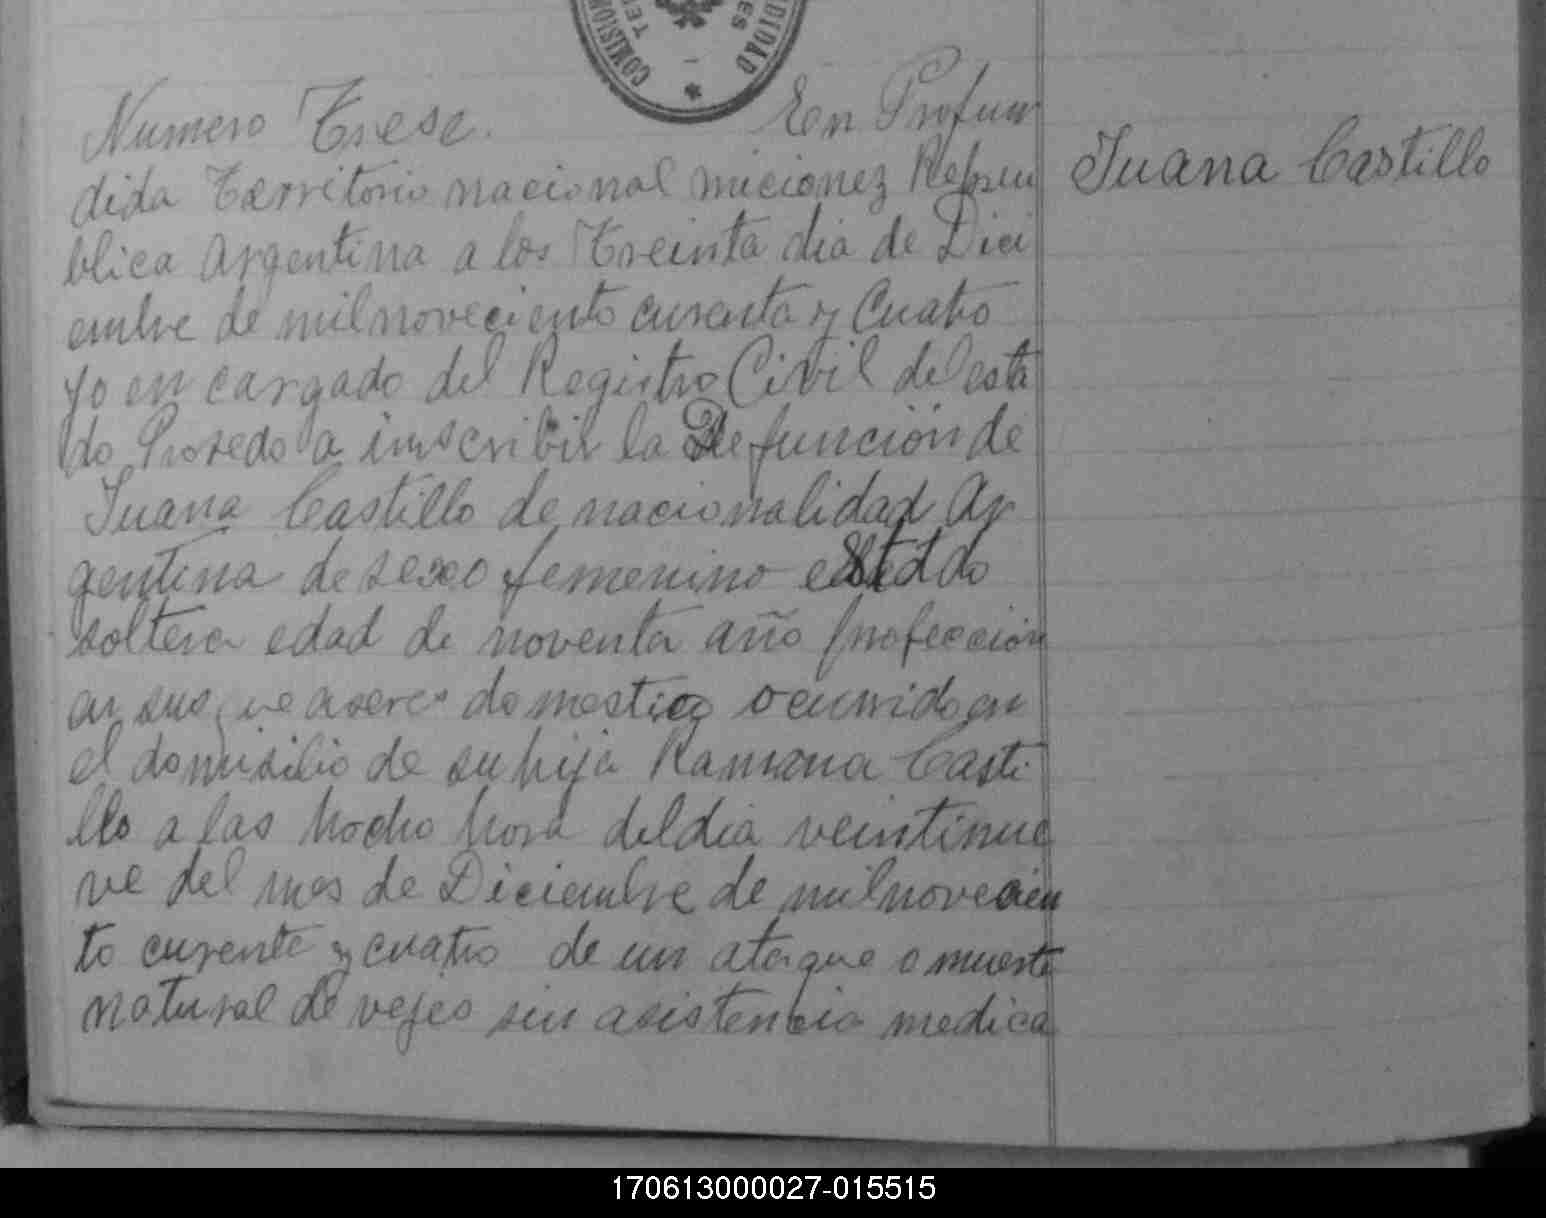 COMISION DIDAD
TE ES
Numero Trese. En Profun
dida Territorio nacional micionez Repu
blica Argentina a los Treinta dia de Dici
embre de milnoveciento curenta y Cuatro
yo en cargado del Registro Civil del esta
do Prosedo a inscribir la Defunción de
Juana Castillo de nacionalidad Ar
gentina de sexo femenino estado
soltera edad de noventa año profección
en sus que aseres domestico ocurrido en
el domisilio de su hija Ramona Casti
llo a las hocho hora del dia veintinue
ve del mes de Diciembre de milnovecien
to curente y cuatro de un ataque o muerte
natural de vejes sin asistencia medica
Juana Castillo
170613000027-015515